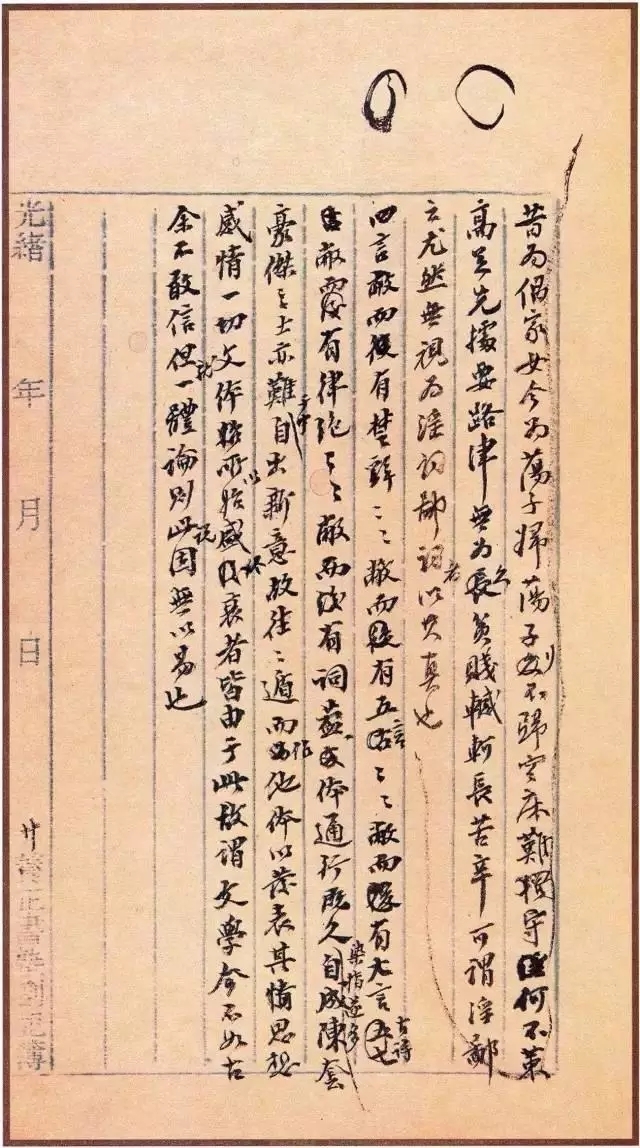 昔為倡家女今為蕩子婦蕩子行不歸空床難獨守何不策
高足先據要路津無為久貧賤轗軻長苦辛可謂淫鄙
之尤然無視為淫詞鄙詞者以其真也
四言敝而後有楚辭〻〻敝而後有五言〻〻敝而後有七言古詩
敝而後有律絕〻〻敝而後有詞蓋文体通行既久染指遂多自成陳套
豪傑之士亦難于中自出新意故往〻遁而作他体以發表其思想
感情一切文体所以始盛終衰者皆由于此故謂文學今不如古
余不敢信但就一體論則此說固無以易也
光緒 年 月 日